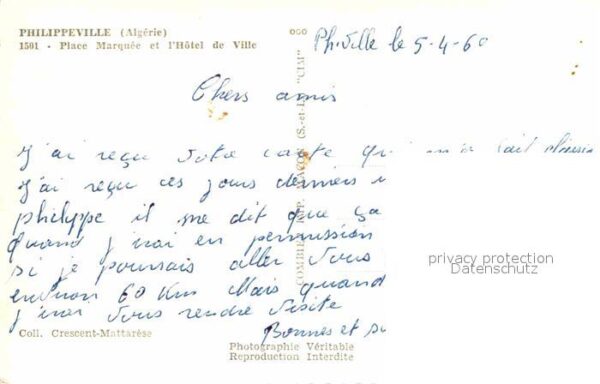 PHILIPPEVILLE (Algérie)
1501 - Place Marquée et l'Hôtel de Ville
Ph.Ville le 5-4-60
Chers amis
J'ai reçu votre carte qui m'a fait plaisir
J'ai reçu ces jours derniers
philippe il me dit que ça
quand j'irai en permission
si je pourrais aller vous
environ 60 Km Mais quand
j'irai vous rendre visite
Bonnes et
COMBIER IMP. MACON (S.-et-L.) "CIM"
privacy protection
Datenschutz
Coll. Crescent-Mattarèse
Photographie Véritable
Reproduction Interdite